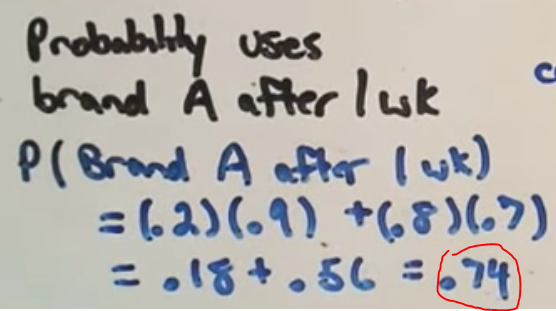 Probability uses
brand A after 1 wk
P(Brand A after 1 wk)
= (.2)(.9) + (.8)(.7)
= .18 + .56 = .74